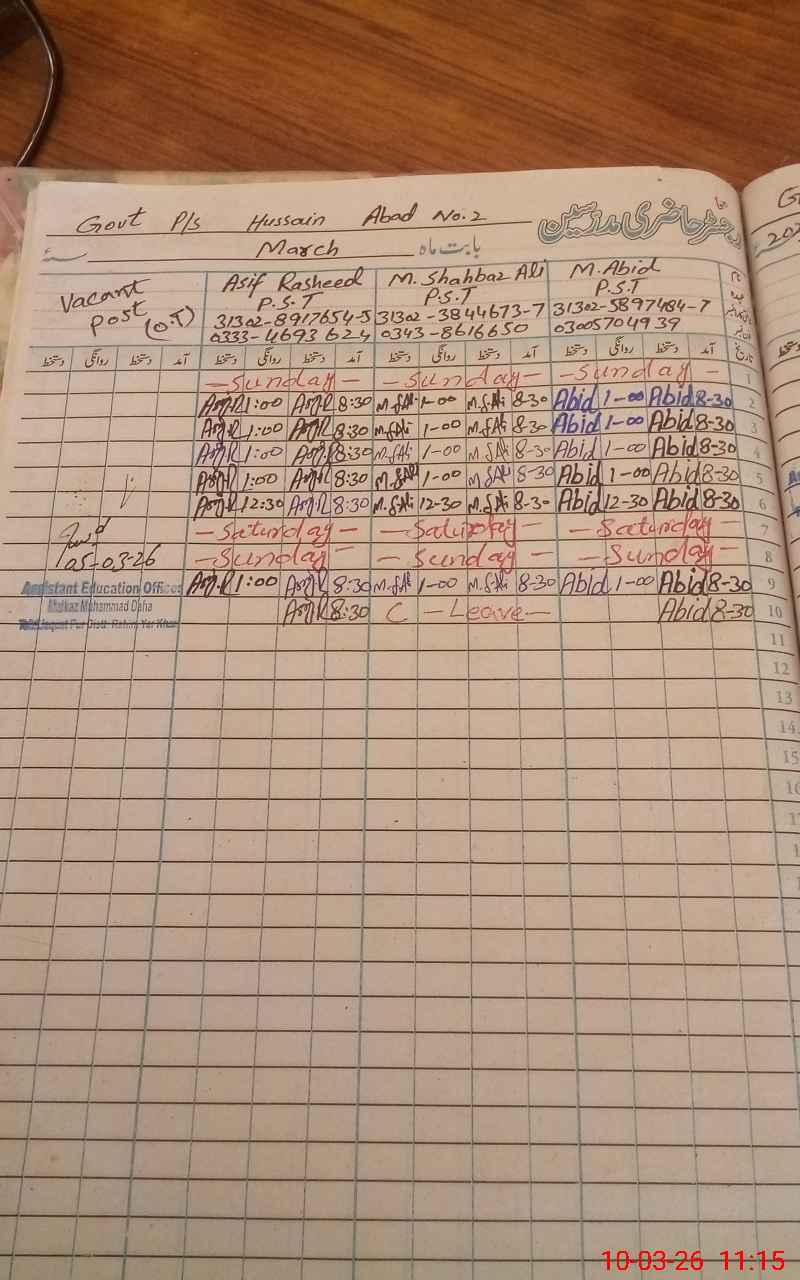 Govt P/s Hussain Abad No.2 رجسٹر حاضری مدرسین
March بابت ماہ
Vacant post (O.T)
Asif Rasheed
P.S.T
31302-8917654-5
0333-4693624
M. Shahbaz Ali
P.S.T
31302-3844673-7
0343-8616650
M. Abid
P.S.T
31302-5897484-7
03005704939
دستخط روانگی دستخط آمد دستخط روانگی دستخط آمد دستخط روانگی دستخط آمد دستخط روانگی دستخط آمد تاریخ
-Sunday- -Sunday- -Sunday- 1
1:00 8:30 M.SAli 1-00 M.SAli 8-30 Abid 1-00 Abid 8-30 2
1:00 8:30 M.SAli 1-00 M.SAli 8-30 Abid 1-00 Abid 8-30 3
1:00 8:30 M.SAli 1-00 M.SAli 8-30 Abid 1-00 Abid 8-30 4
1:00 8:30 M.SAli 1-00 M.SAli 8-30 Abid 1-00 Abid 8-30 5
12:30 8:30 M.SAli 12-30 M.SAli 8-30 Abid 12-30 Abid 8-30 6
-Saturday- -Saturday- -Saturday- 7
05-03-26 -Sunday- -Sunday- -Sunday- 8
Assistant Education Officer 1:00 8:30 M.SAli 1-00 M.SAli 8-30 Abid 1-00 Abid 8-30 9
Markaz Muhammad Daha 8:30 C -Leave- Abid 8-30 10
Liaquat Pur Distt. Rahim Yar Khan
11
12
13
14
15
10-03-26 11:15